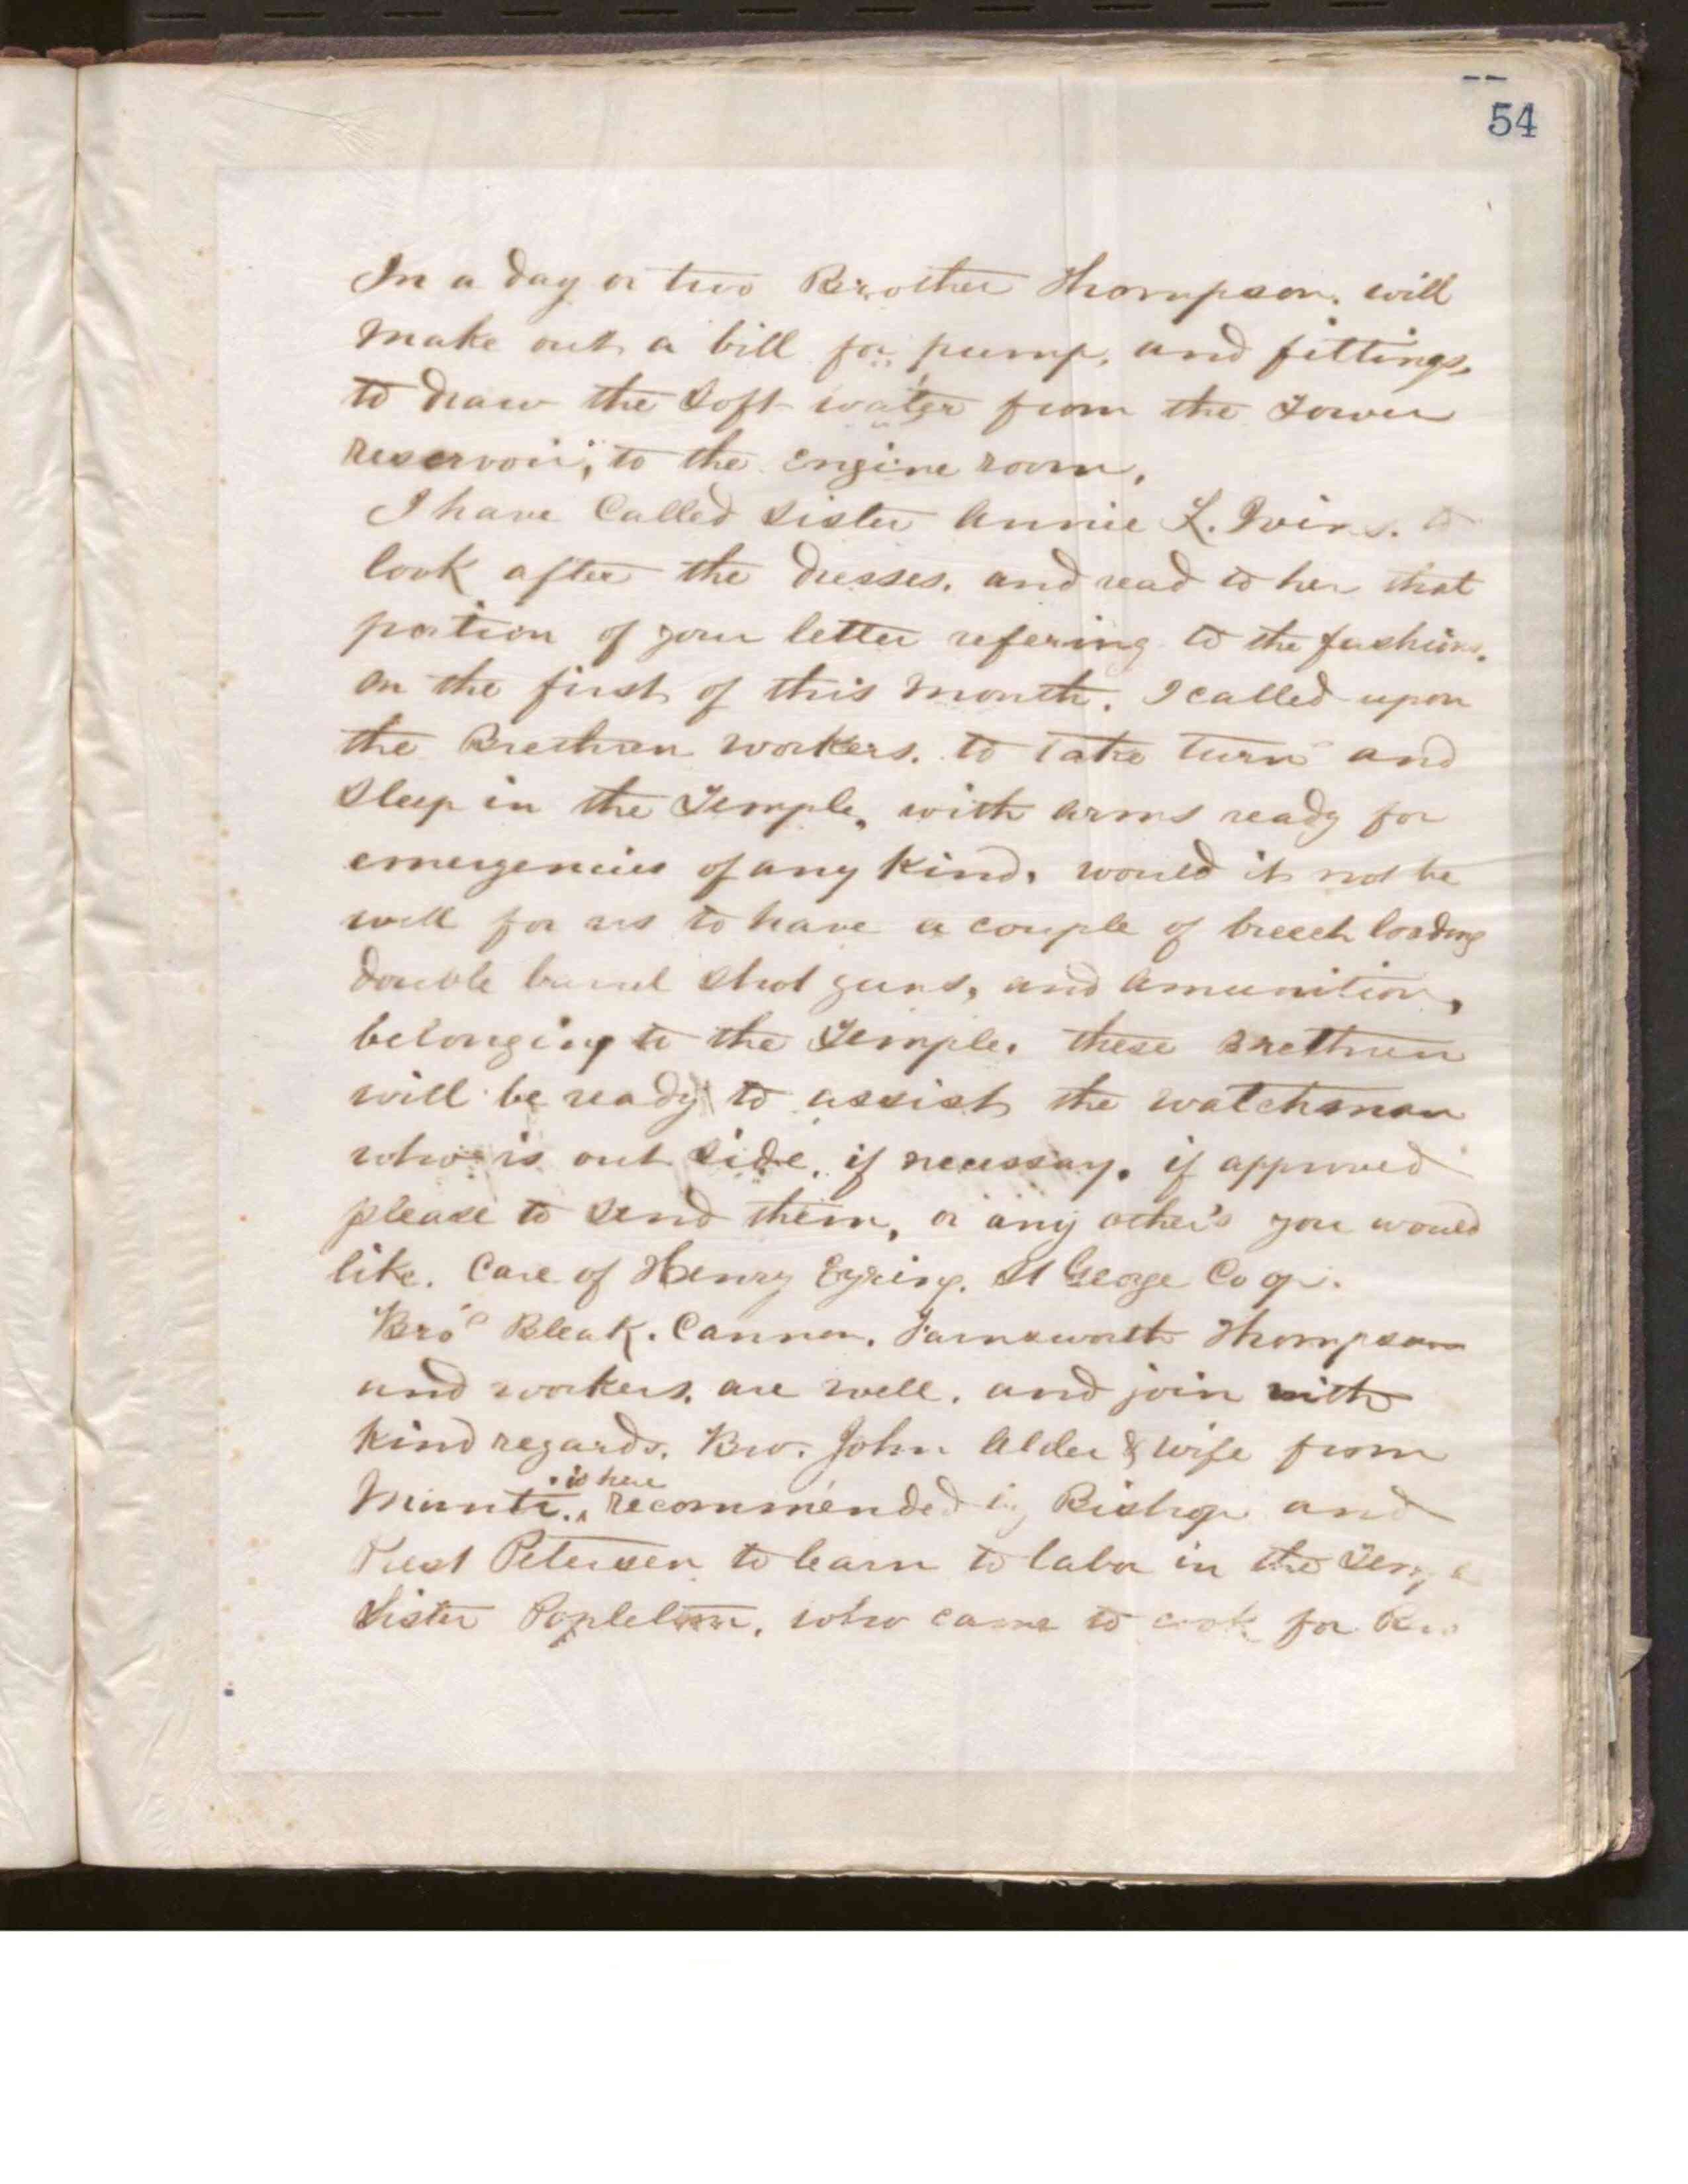 54
In a day or two Brother Thompson. will
make out a bill for pump, and fittings,
to draw the Soft water from the Tower
reservoir, to the engine room.
I have Called Sister Annie L. Ivins. to
look after the dresses. and read to her that
portion of your letter refering to the fashions.
on the first of this month. I called upon
the Brethren workers. to take turn and
Sleep in the Temple, with arms ready for
emergencies of any Kind, would it not be
well for us to have a couple of breech loading
double barrel Shot guns, and amunition,
belonging to the Temple. these Brethren
will be ready to assist the watchman
who is out Side, if necessary. if approved
please to Send them, or any other's you would
like. Care of Henry Eyring. St George Co op.
Bro's Bleak. Cannon. Farnsworth Thompson
and workers. are well. and join with
Kind regards. Bro. John Alder & wife from
is here
Manti. recommended by Bishop and
Prest Petersen to learn to labor in the Temple
Sister who came to cook for Bro